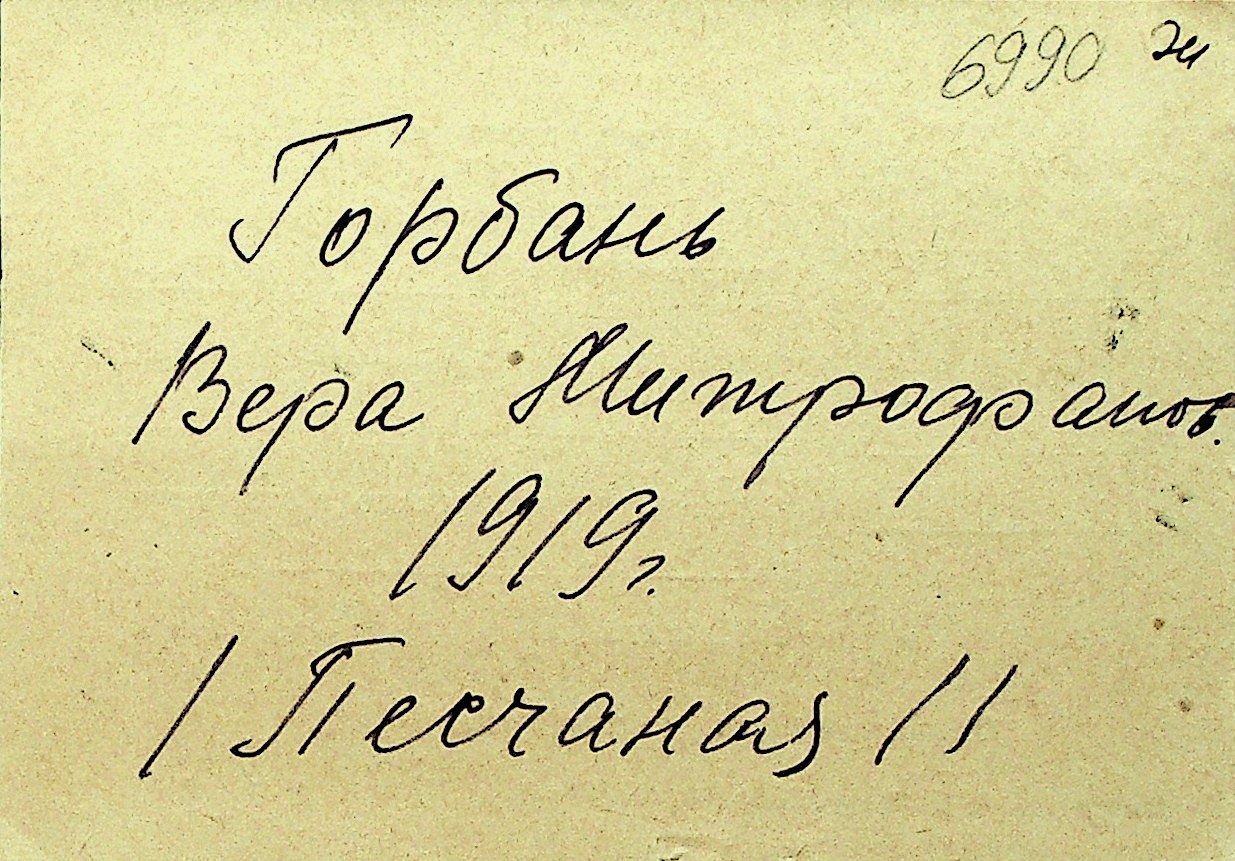 6990 ж
Горбань
Вера Митрофанов.
1919г.
1 Песчаная 11